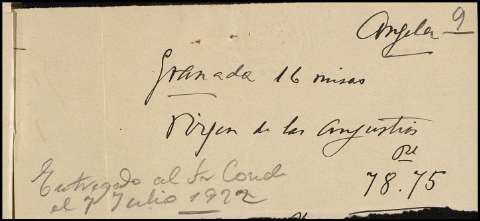 Angela 9
Granada 16 misas
Virgen de las Angustias
78.75
Entregado al Sr Conde
el 7 Julio 1922